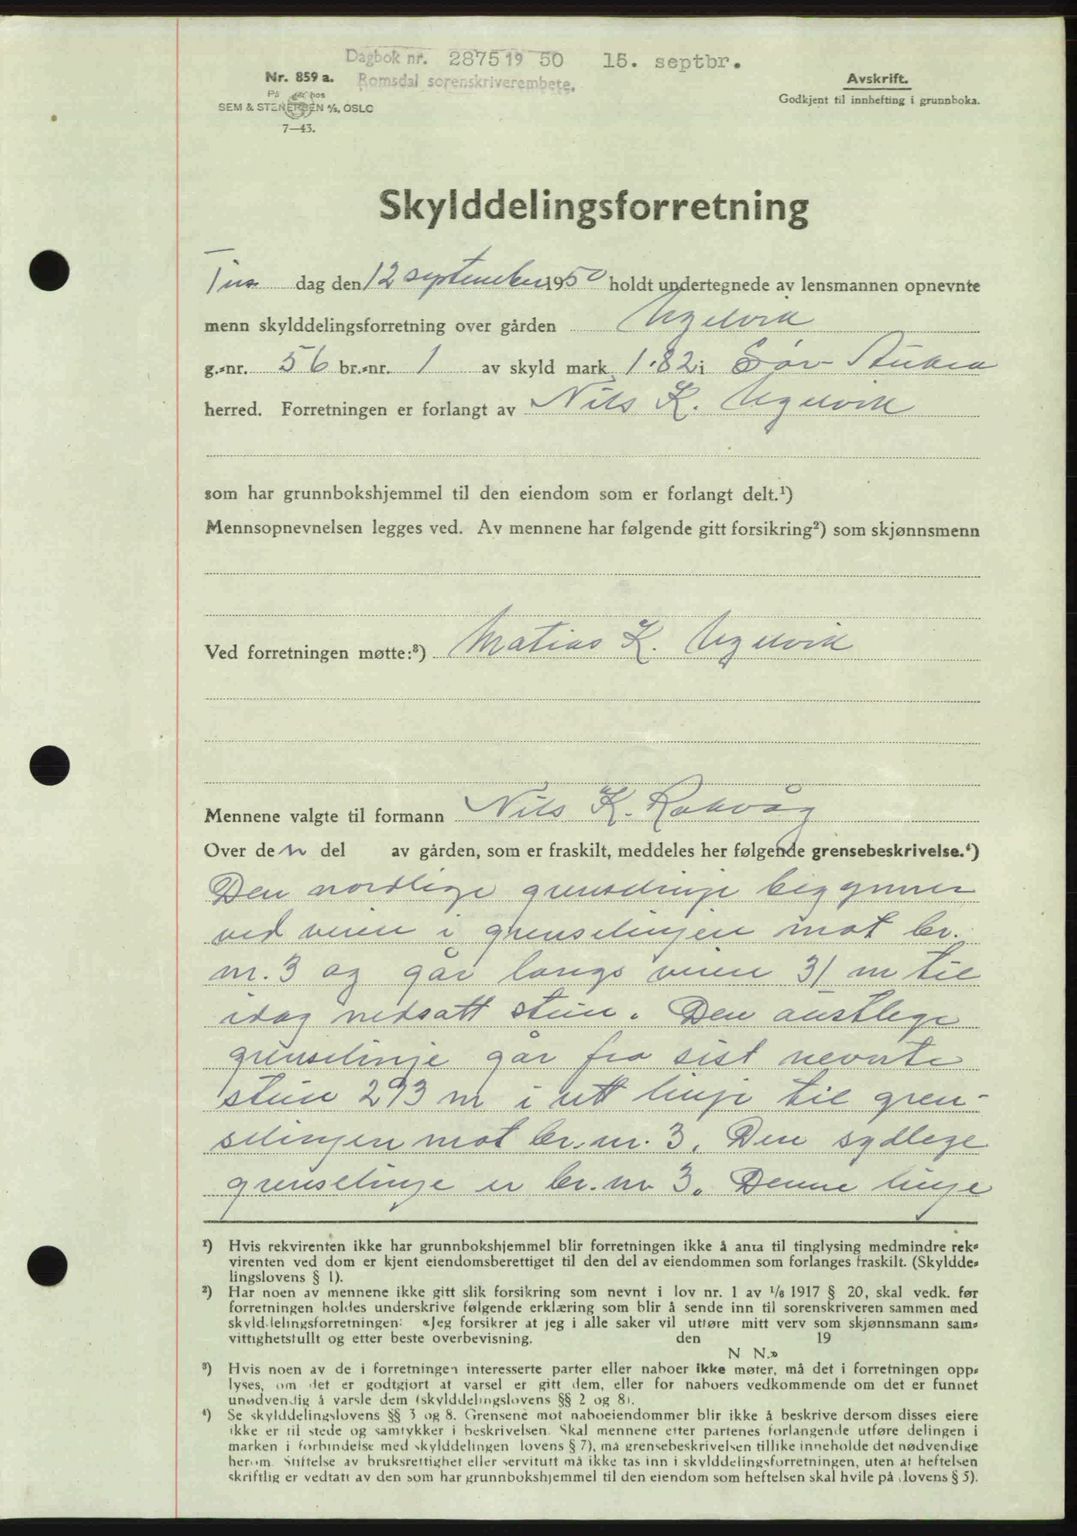 Dagbok nr. 2875 19 50 15. septbr.
Romsdal sorenskriverembete.
Nr. 859 a.
På hos
SEM & STENERSEN A/S, OSLO
7—43.
Avskrift.
Godkjent til innhefting i grunnboka.
Skylddelingsforretning
dag den 12 september 1950 holdt undertegnede av lensmannen opnevnte
menn skylddelingsforretning over gården Ugelvik
g.-nr. 56 br.-nr. 1 av skyld mark 1.82 i Sør Aukra
herred. Forretningen er forlangt av Nils K. Ugelvik
som har grunnbokshjemmel til den eiendom som er forlangt delt.¹)
Mennsopnevnelsen legges ved. Av mennene har følgende gitt forsikring²) som skjønnsmenn
Ved forretningen møtte:³) Matias K. Ugelvik
Mennene valgte til formann Nils K. Rakvåg
Over den del av gården, som er fraskilt, meddeles her følgende grensebeskrivelse.⁴)
Den nordlige grenselinje begynner
ved veien i grenselinjen mot br.
nr. 3 og går langs veien 31 m til
idag nedsatt stein. Den austlege
grenselinje går fra sist nevnte
stein 293 m i rett linje til gren-
selinjen mot br. nr. 3. Den sydlege
grenselinje er br. nr 3. Denne linje
¹) Hvis rekvirenten ikke har grunnbokshjemmel blir forretningen ikke å anta til tinglysing medmindre rek-
virenten ved dom er kjent eiendomsberettiget til den del av eiendommen som forlanges fraskilt. (Skyldde-
lingslovens § 1).
²) Har noen av mennene ikke gitt slik forsikring som nevnt i lov nr. 1 av 1/6 1917 § 20, skal vedk. før
forretningen holdes underskrive følgende erklæring som blir å sende inn til sorenskriveren sammen med
skylddelingsforretningen: «Jeg forsikrer at jeg i alle saker vil utføre mitt verv som skjønnsmann sam-
vittighetsfullt og etter beste overbevisning. den 19
N N.»
³) Hvis noen av de i forretningen interesserte parter eller naboer ikke møter, må det i forretningen opp-
lyses, om det er godtgjort at varsel er gitt dem, eller for naboers vedkommende om det er funnet
unødvendig å varsle dem (skylddelingslovens §§ 2 og 8).
⁴) Se skylddelingslovens §§ 3 og 8. Grensene mot naboeiendommer blir ikke å beskrive dersom disses eiere
ikke er til stede og samtykker i beskrivelsen. Skal mennene etter partenes forlangende utføre delingen i
marken i forbindelse med skylddelingen (lovens § 7), må grensebeskrivelsen tillike inneholde det nødvendige
herom. Stiftelse av bruksrettighet eller servitutt må ikke tas inn i skylddelingsforretningen, uten at heftelsen
skriftlig er vedtatt av den som har grunnbokshjemmel til den eiendom som heftelsen skal hvile på (lovens § 5).